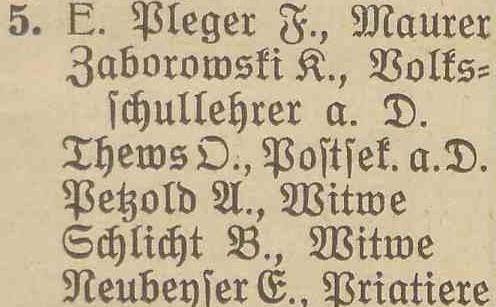 5. E. Pleger F., Maurer
Zaborowski K., Volks=
schullehrer a. D.
Thews O., Postsek. a. D.
Petzold A., Witwe
Schlicht B., Witwe
Neubeyser E., Priatiere